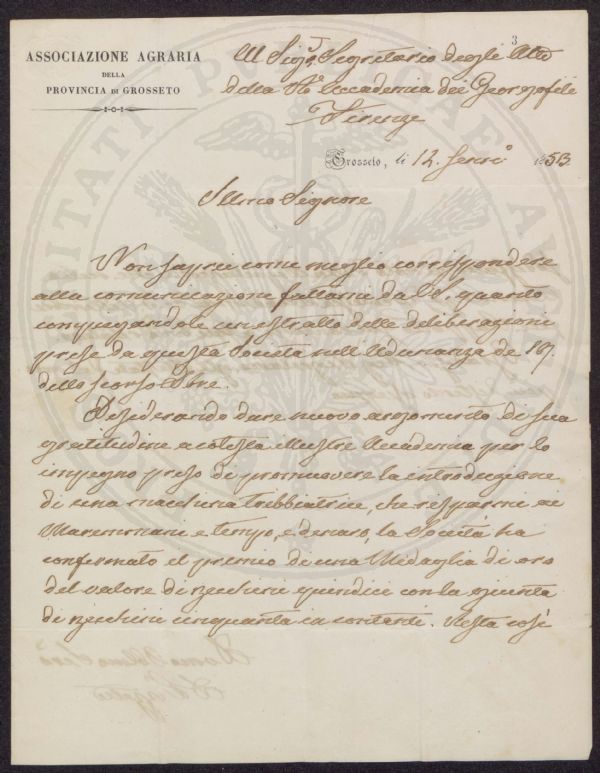 3
ASSOCIAZIONE AGRARIA
DELLA
PROVINCIA DI GROSSETO
Al Sig. Segretario degli Atti
della Rle Accademia dei Georgofili
Firenze
Grosseto, li 12. Genn° 1853
Illmo Signore
Non saprei come meglio corrispondere
alla comunicazione fattami da S. quanto
compiegandole un estratto delle deliberazioni
prese da questa Società nell'Adunanza de
dello scorso Xbre.
Desiderando dare nuovo argomento di sua
gratitudine a cotesta illustre Accademia per lo
impegno preso di promuovere la introduzione
di una macchina trebbiatrice, che risparmi ai
Maremmani e tempo, e denaro, la Società ha
confermato il premio di una Medaglia di oro
del valore di zecchini quindici con la giunta
di zecchini cinquanta in contanti. Resta così